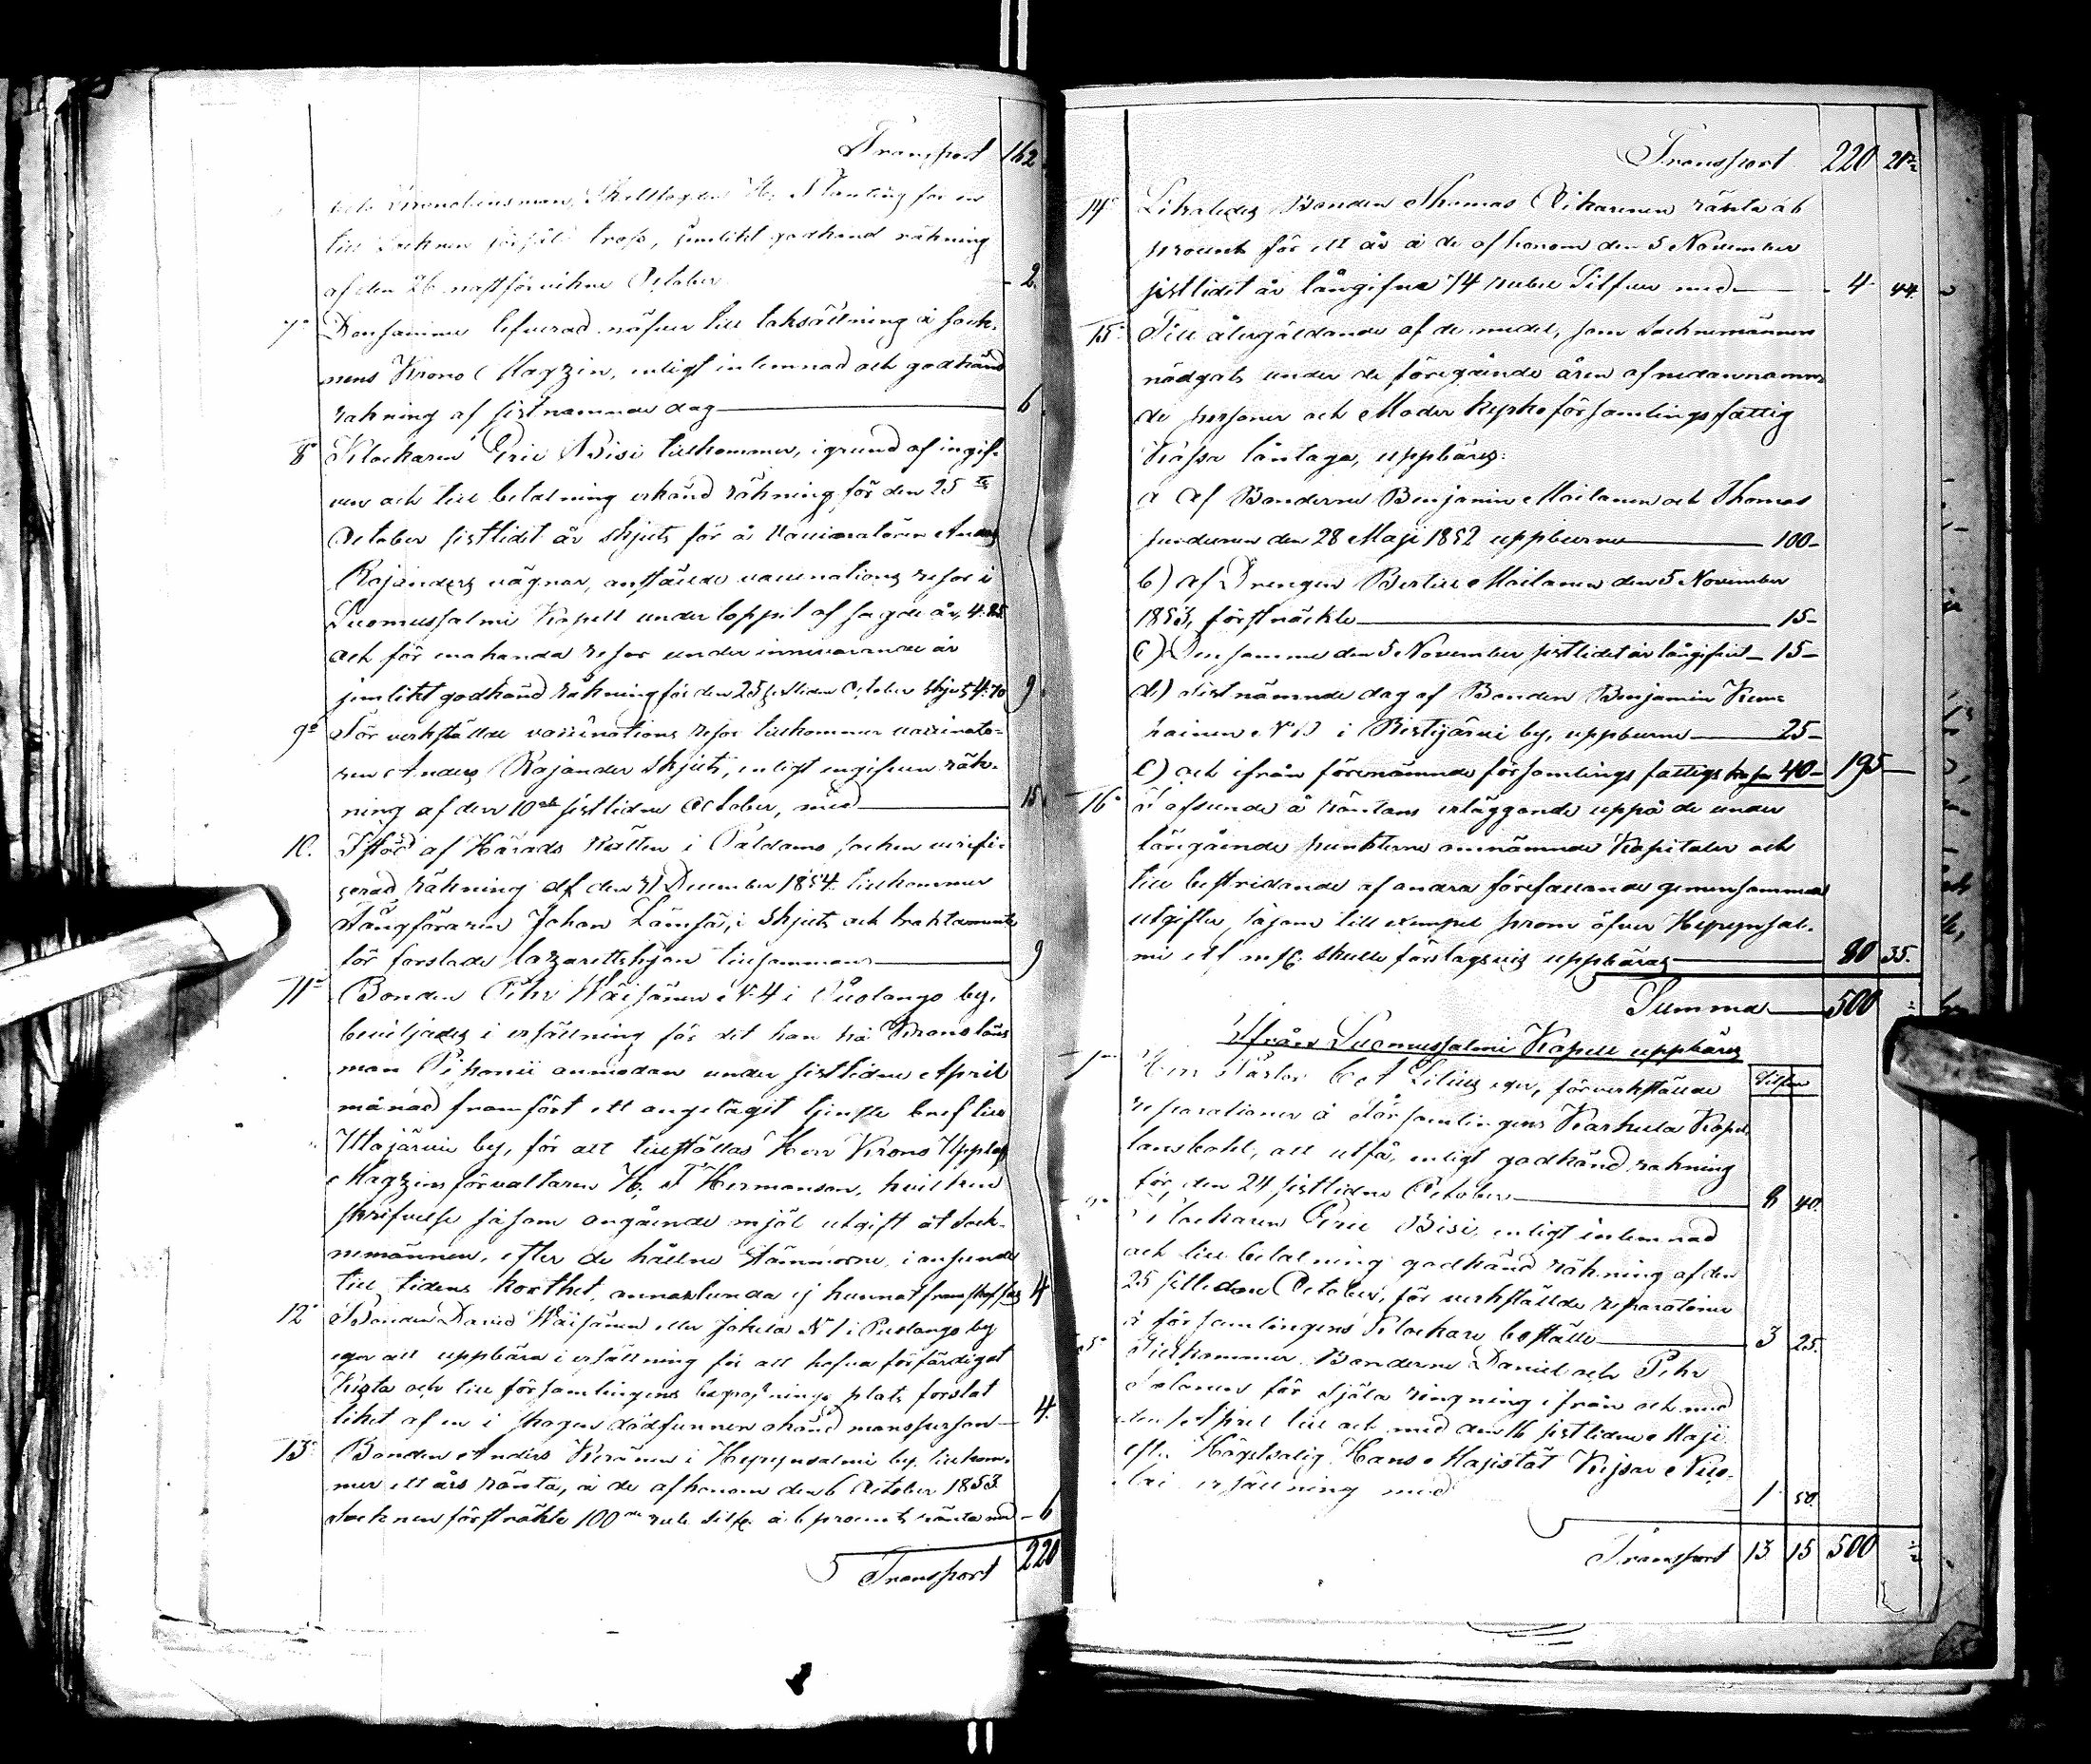 Transport 162
Kronolänsman H. Planting för en
till Socknen försåld , jemlikt godkänd räkning
af den 26 nästförvikne October 2.
7o Densamme lefverad näfver till taksättning å Sock-
nens Krono Magazin, enligt inlemnad och godkänd
räkning af sistnämnde dag 6
8o Klockaren Eric Bisi tillkommer, i grund af ingif-
ven och till betalning erkänd räkning för den 25te
October sistlidit år skjuts för å Vaccinatören Anders
Rajanders vägnar, anstälde vaccinations resor i
Suomussalmi Kapell under loppet af sagde år, 4: 25
och för enahanda resor under innevarande år
jemlikt godkänd räkning för den 25 sistliden October skjuts 4: 70 9
9o För verkstälde vaccinations resor tillkommer vaccinato-
ren Anders Rajander skjuts, enligt ingifven räk-
ning af den 10de sistlidne October, med 15.
10. I stöd af Härads Rätten i Paldamo socken verifi-
cerad räkning af den 31 December 1854 tillkommer
Fångföraren Johan Lämsä, i skjuts och traktamente
för forslade lazarettshjon tillsammans 9
11o Bonden Pehr Wäisänen No 4 i Puolango by,
beviljades i ersättning för det han på Kronolänsman
man Pihonii anmodan under sistlidne April
månad framfört ett angelägit tjenste bref till
Utajärvi by, för att tillställas Herr Krono Upplags
Magazins förvaltaren H. F. Hermanson, hvilken
skrifvelse såsom angående mjöl utgift åt Sock-
nemännen, efter de hållne stämmorne, i anseende
till tidens korthet, annorlunda ej kunnat framskaffas 4
12o Bonden David Wäisänen eller Jokela No 1 i Puolango by
eger att uppbära i ersättning för att hafva förfärdigat
kista och till församlingens begrafnings plats forslat
liket af en i skogen dödfunnen okänd mansperson 4.
13o Bonden Anders Keränen i Hyrynsalmi by tillkom-
mer ett års ränta, å de af honom den 6 October 1853
Socknen försträkte 100de rub. Silfr. à 6 procent ränta med 6
Transport 220
Transport 220 21 1/2
14o Likaledes Bonden Thomas Oikarinen ränta à 6
procent för ett år å de af honom den 5 November
sistlidit år långifne 74 rubel Silfver med 4 44.
15o Till återgäldande af de medel, som Socknemännen
nödgats under de föregående åren af nedannämn-
de personer och Moder kyrkoförsamlings fattig
Kassa låntaga, uppbäres:
a Af Bönderne Benjamin Mailanen och Thomas
Juntunen den 28 Maji 1852 uppburne 100-
b) af Drengen Bertill Mailanen den 5 November
1853, försträckte 15-
c) Densamme den 5 November sistlidit år långifvit 15-
d) Sistnämnde dag af Bonden Benjamin Kem-
painen No 13 i Ristijärvi by, uppburne 25-
e) och ifrån förenämnde församlings fattigkassa 40- 195
16o I afseende å räntans erläggande uppå de under
långående punkterne omnämnde Kapitaler och
till bestridande af andra förefallande gemensamma
utgifter, såsom till exempel prom öfver Hyrynsal-
mi elf m. fl. skulle förslagsvis uppbäras 80 35.
Summa 500
Ifrån Suomussalmi Kapell uppbäres
Silfver
1o Herr Pastor C A Lilius eger, för verkstälde
reparationer å Församlingens Karhula Kapel-
lansbohl, att utfå, enligt godkänd räkning
för den 24 sistlidne October 8 40.
2o Klockaren Eric Bisi, enligt inlemnad
och till betalning godkänd räkning af den
25 sistledne October, för verkstälde reparationer
å församlingens Klockare boställe 3 25.
3o Tillkommer Bönderne Daniel och Pehr
Tolonen för själa ringning ifrån och med
den April till och med den 16 sistlidne Maji
efter Högstsalig Hans Majestät Kejsar Nico-
lai ersättning med 1 50.
Transport 13 15 500